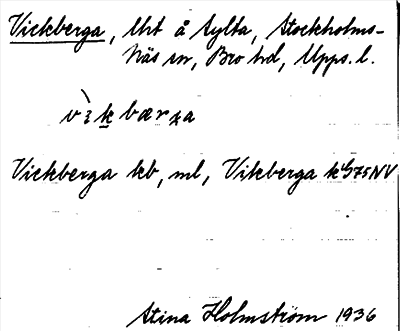 Vickberga, lht å Sylta, Stockholms-
Näs sn, Bro hd, Upps. l.
vìkbærga
Vickberga kb, ml, Vikberga k 675NV
Stina Holmström 1936